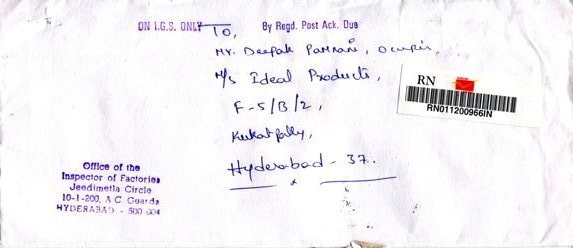 ON I.G.S. ONLY
By Regd. Post Ack. Due
To,
Mr. Deepak Pamnani, Occupier,
M/s Ideal Products,
F-5/B/2,
Kukatpally,
Hyderabad - 37.
RN
RN011200966IN
Office of the
Inspector of Factories
Jeedimetla Circle
10-1-200, A.C. Guards
HYDERABAD - 500 004